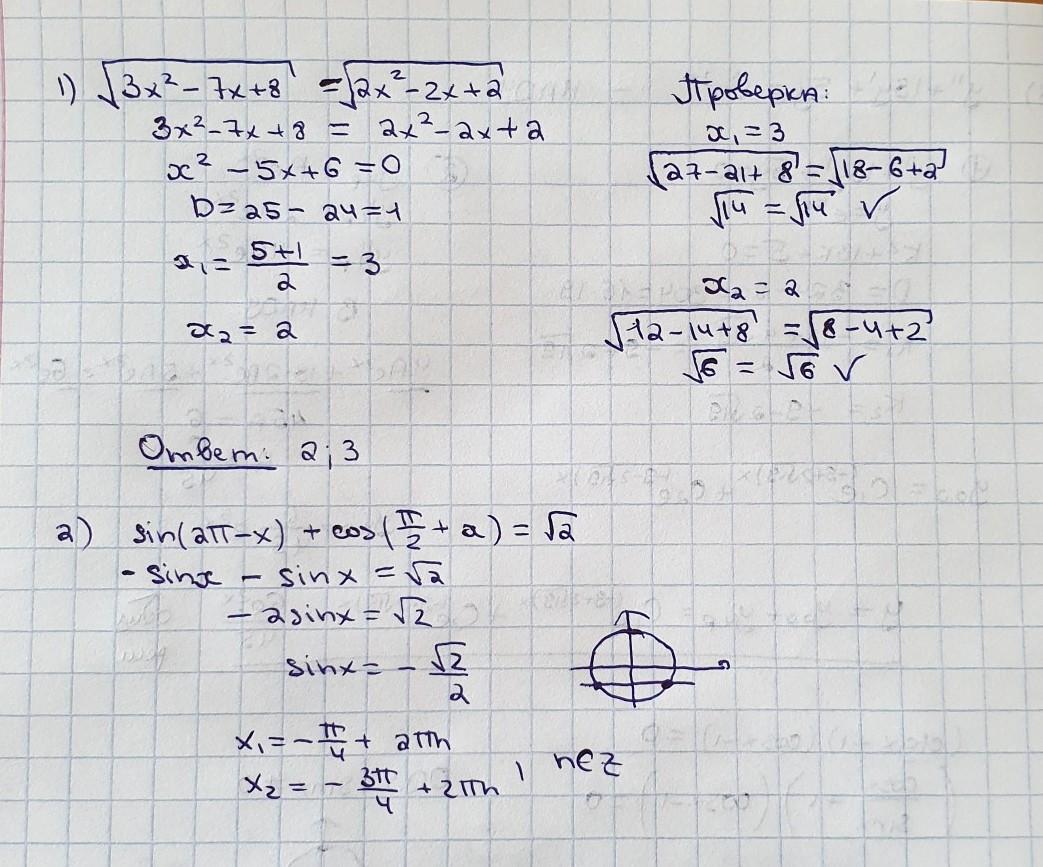 1) √(3x² - 7x + 8) = √(2x² - 2x + 2)
3x² - 7x + 8 = 2x² - 2x + 2
x² - 5x + 6 = 0
D = 25 - 24 = 1
x₁ = (5+1)/2 = 3
x₂ = 2
Проверка:
x₁ = 3
√(27 - 21 + 8) = √(18 - 6 + 2)
√14 = √14 ✓
x₂ = 2
√(12 - 14 + 8) = √(8 - 4 + 2)
√6 = √6 ✓
Ответ: 2; 3
2) sin(2π - x) + cos(π/2 + x) = √2
- sinx - sinx = √2
- 2sinx = √2
sinx = - √2/2
x₁ = - π/4 + 2πn
x₂ = - 3π/4 + 2πn , n∈Z